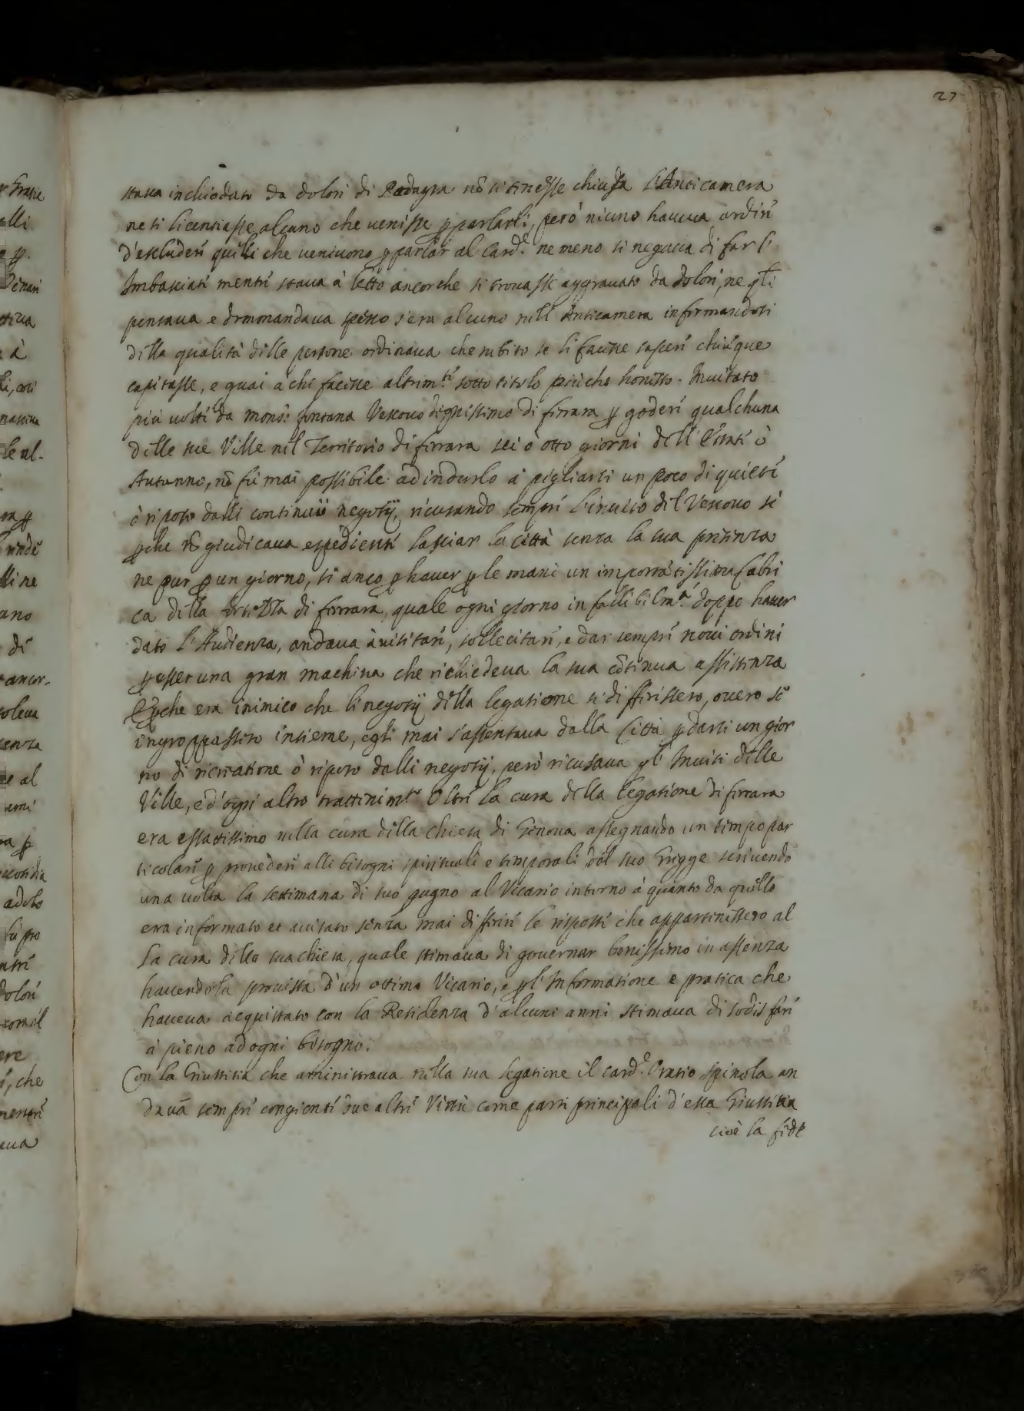 27
staua inchiodato da dolori di Podagra nō si tenesse chiusa l'Anticamera
ne si licentiasse alcuno che venisse ꝑ parlarli, però niuno haueua ordin
d'escluderi quelli che veniuono ꝑ parlar al Card.e ne meno si negaua di far l'
Imbasciati mentri staua à letto ancorche si trouassi aggrauato da dolori, ne
pensaua e dimmandaua spesso s'era alcuno nell' Anticamera informandosi
della qualità delle persone ordinaua che subito se li facisse saperi chiūque
capitasse, e guai à chi facisse altrim.ti sotto titolo più che honesto. Inuitato
più volti da mons.r fontana Vescouo dignissimo di ferrara ꝑ goderi qualchuna
delle sue Ville nel Territorio di ferrara sei ò otto giorni dell' Estati ò
Autunno, nō fu mai possibile ad indurlo à pigliarsi un poco di quieti
ò riposo dalli continui negotÿ, ricusando sempri l'inuito del Vescouo si
ꝑche nō giudicaua espedienti lasciar la città senza la sua presenza
ne pur ꝑ un giorno, si anco ꝑ hauer ꝑ le mani un importātissima fabri
ca della di ferrara, quale ogni giorno infallibilm.te doppo hauer
dato l'Audienza, andaua à uisitari, sollecitari, e dar sempri noui ordini
ꝑ esser una gran machina che richiedeua la sua cōtinua assistenza
E ꝑche era inimico che li negotÿ della legatione si differissero, ouero si
ingroppassero insieme, egli mai s'assentaua dalla Città ꝑ darsi un gior
no di ricriatione ò riposo dalli negotÿ, però ricusaua gl' Inuiti delle
Ville, e d'ogni altro trattinim.to Oltri la cura della legatione di ferrara
era essattissimo nella cura della chiesa di Genoua assegnando un tempo par
ticolari ꝑ prouederi alli bisogni spirituali e temporali del suo Gregge scriuendo
una uolta la settimana di suo pugno al Vicario intorno à quanto da quello
era informato et auisato senza mai differiri le risposti che appartinissero al
la cura della sua chiesa, quale stimaua di gouernar benissimo in assenza
hauendola prouista d'un ottimo Vicario, e ꝑ l'Informatione e pratica che
haueua acquistato con la Residenza d'alcuni anni stimaua di sodisfari
à pieno ad ogni bisogno.
Con la Giustitia che aministraua nella sua legatione il card.e Oratio Spinola an
dauā sempri congionti due altri Virtù come parti principali d'essa Giustitia
cioè la fide